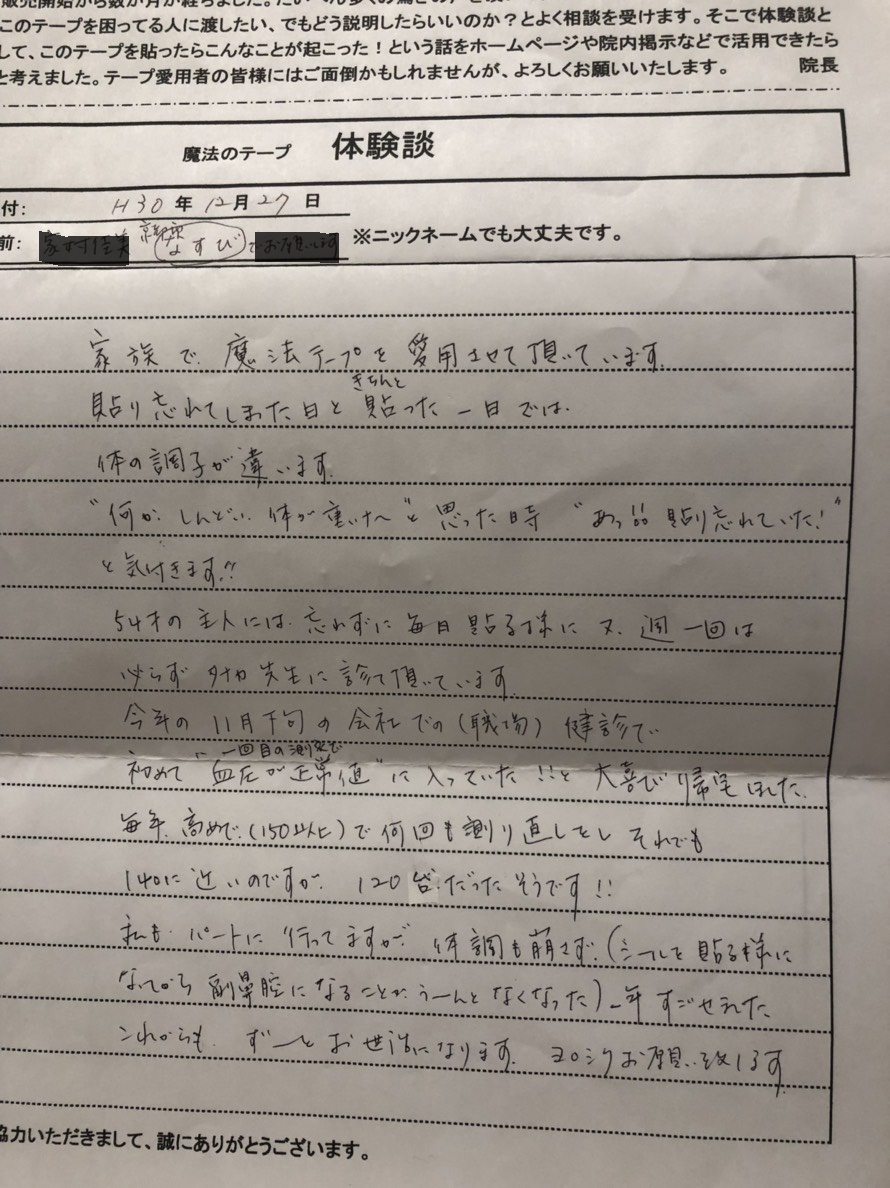 販売開始から数か月が経ちました。たい
このテープを困ってる人に渡したい、でもどう説明したらいいのか？とよく相談を受けます。そこで体験談と
して、このテープを貼ったらこんなことが起こった！という話をホームページや院内掲示などで活用できたら
と考えました。テープ愛用者の皆様にはご面倒かもしれませんが、よろしくお願いいたします。 院長
魔法のテープ 体験談
付： H30年12月27日
前： なすび で ※ニックネームでも大丈夫です。
家族で、魔法テープを愛用させて頂いています。
貼り忘れてしまった日ときちんと貼った一日では、
体の調子が違います。
"何か、しんどい、体が重いナ～"と思った時 "あっ!! 貼り忘れていた！"
と気付きます!!
54才の主人には、忘れずに毎日貼る様に 又、週一回は
必らずタナカ先生に診て頂いています。
今年の11月下旬の会社での(職場)健診で、
初めて一回目の測定で"血圧が正常値"に入っていた!!と大喜びで帰宅しました。
毎年、高めで、(150以上)で何回も測り直しをし それでも
140に近いのですが、120台だったそうです!!
私も、パートに行ってますが、体調も崩さず、(シールを貼る様に
なってから 副鼻腔になることがうーんとなくなった)一年すごせました
これからも、ずーっとお世話になります。ヨロシクお願い致します。
協力いただきまして、誠にありがとうございます。